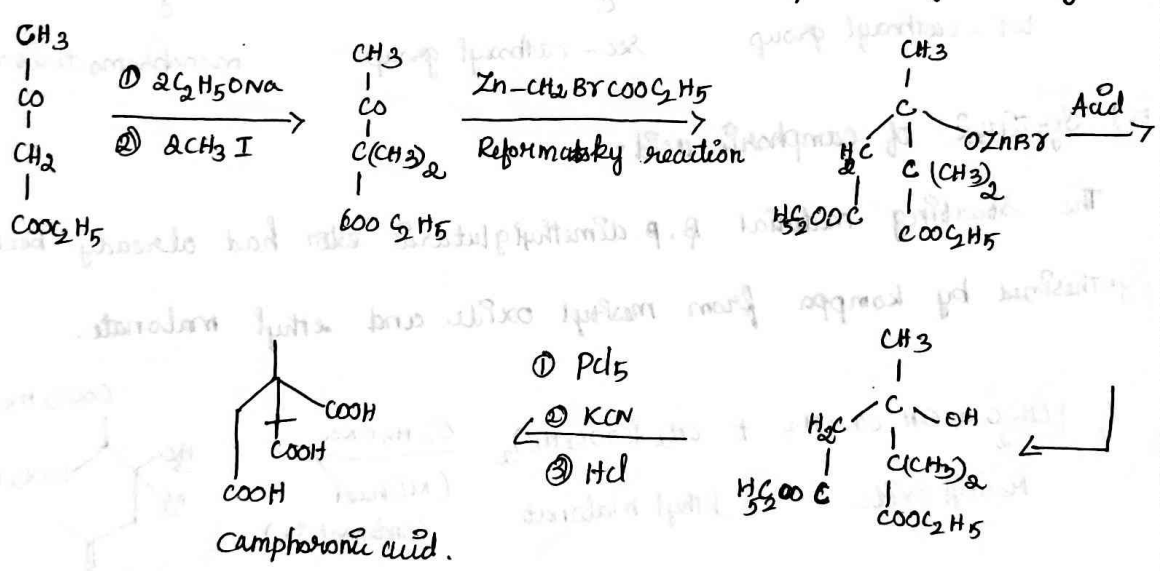 CH3
CO
CH2
COOC2H5
① 2C2H5ONa
② 2CH3 I
CH3
CO
C(CH3)2
COO C2H5
Zn-CH2 Br COO C2 H5
Reformatsky reaction
CH3
C
H2C
OZnBr
C (CH3)2
H5C2OOC
COOC2H5
Acid
CH3
C
H2C
OH
C(CH3)2
H5C2OO C
COOC2H5
① Pcl5
② KCN
③ Hcl
COOH
COOH
COOH
Camphoronic acid.